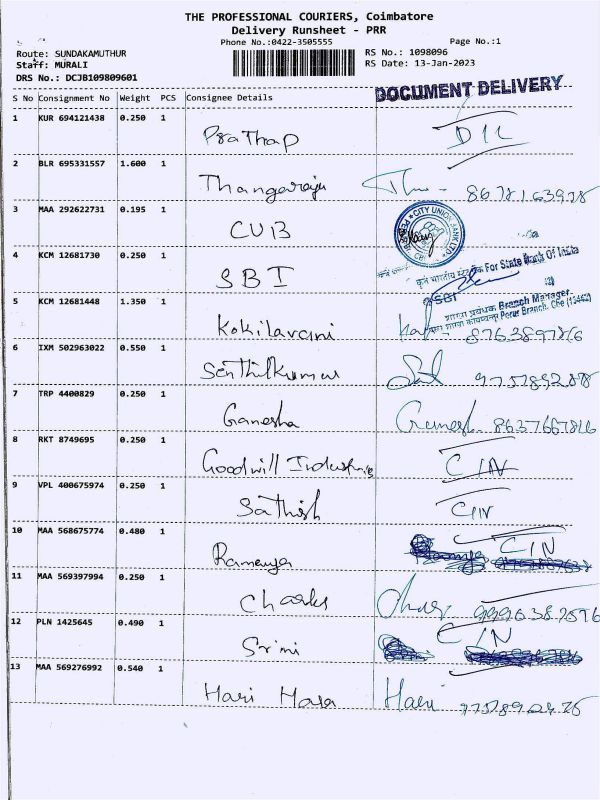 THE PROFESSIONAL COURIERS, Coimbatore
Delivery Runsheet - PRR
Phone No.:0422-3505555 Page No.:1
Route: SUNDAKAMUTHUR RS No.: 1098096
Staff: MURALI RS Date: 13-Jan-2023
DRS No.: DCJB109809601
DOCUMENT DELIVERY
S No Consignment No Weight PCS Consignee Details
1 KUR 694121438 0.250 1 Prathap
2 BLR 695331557 1.600 1 Thangaraju
3 MAA 292622731 0.195 1 CUB CITY UNION BANK LTD
4 KCM 12681730 0.250 1 SBI For State Bank Of India
5 KCM 12681448 1.350 1 Kokilavani Branch Manager
6 IXM 502963022 0.550 1 Senthilkumar
7 TRP 4400829 0.250 1 Ganesha
8 RKT 8749695 0.250 1 Goodwill Industries CIN
9 VPL 400675974 0.250 1 Sathish CIN
10 MAA 568675774 0.480 1 CIN
11 MAA 569397994 0.250 1 Charles
12 PLN 1425645 0.490 1 Srini CIN
13 MAA 569276992 0.540 1 Hari Hara Hari